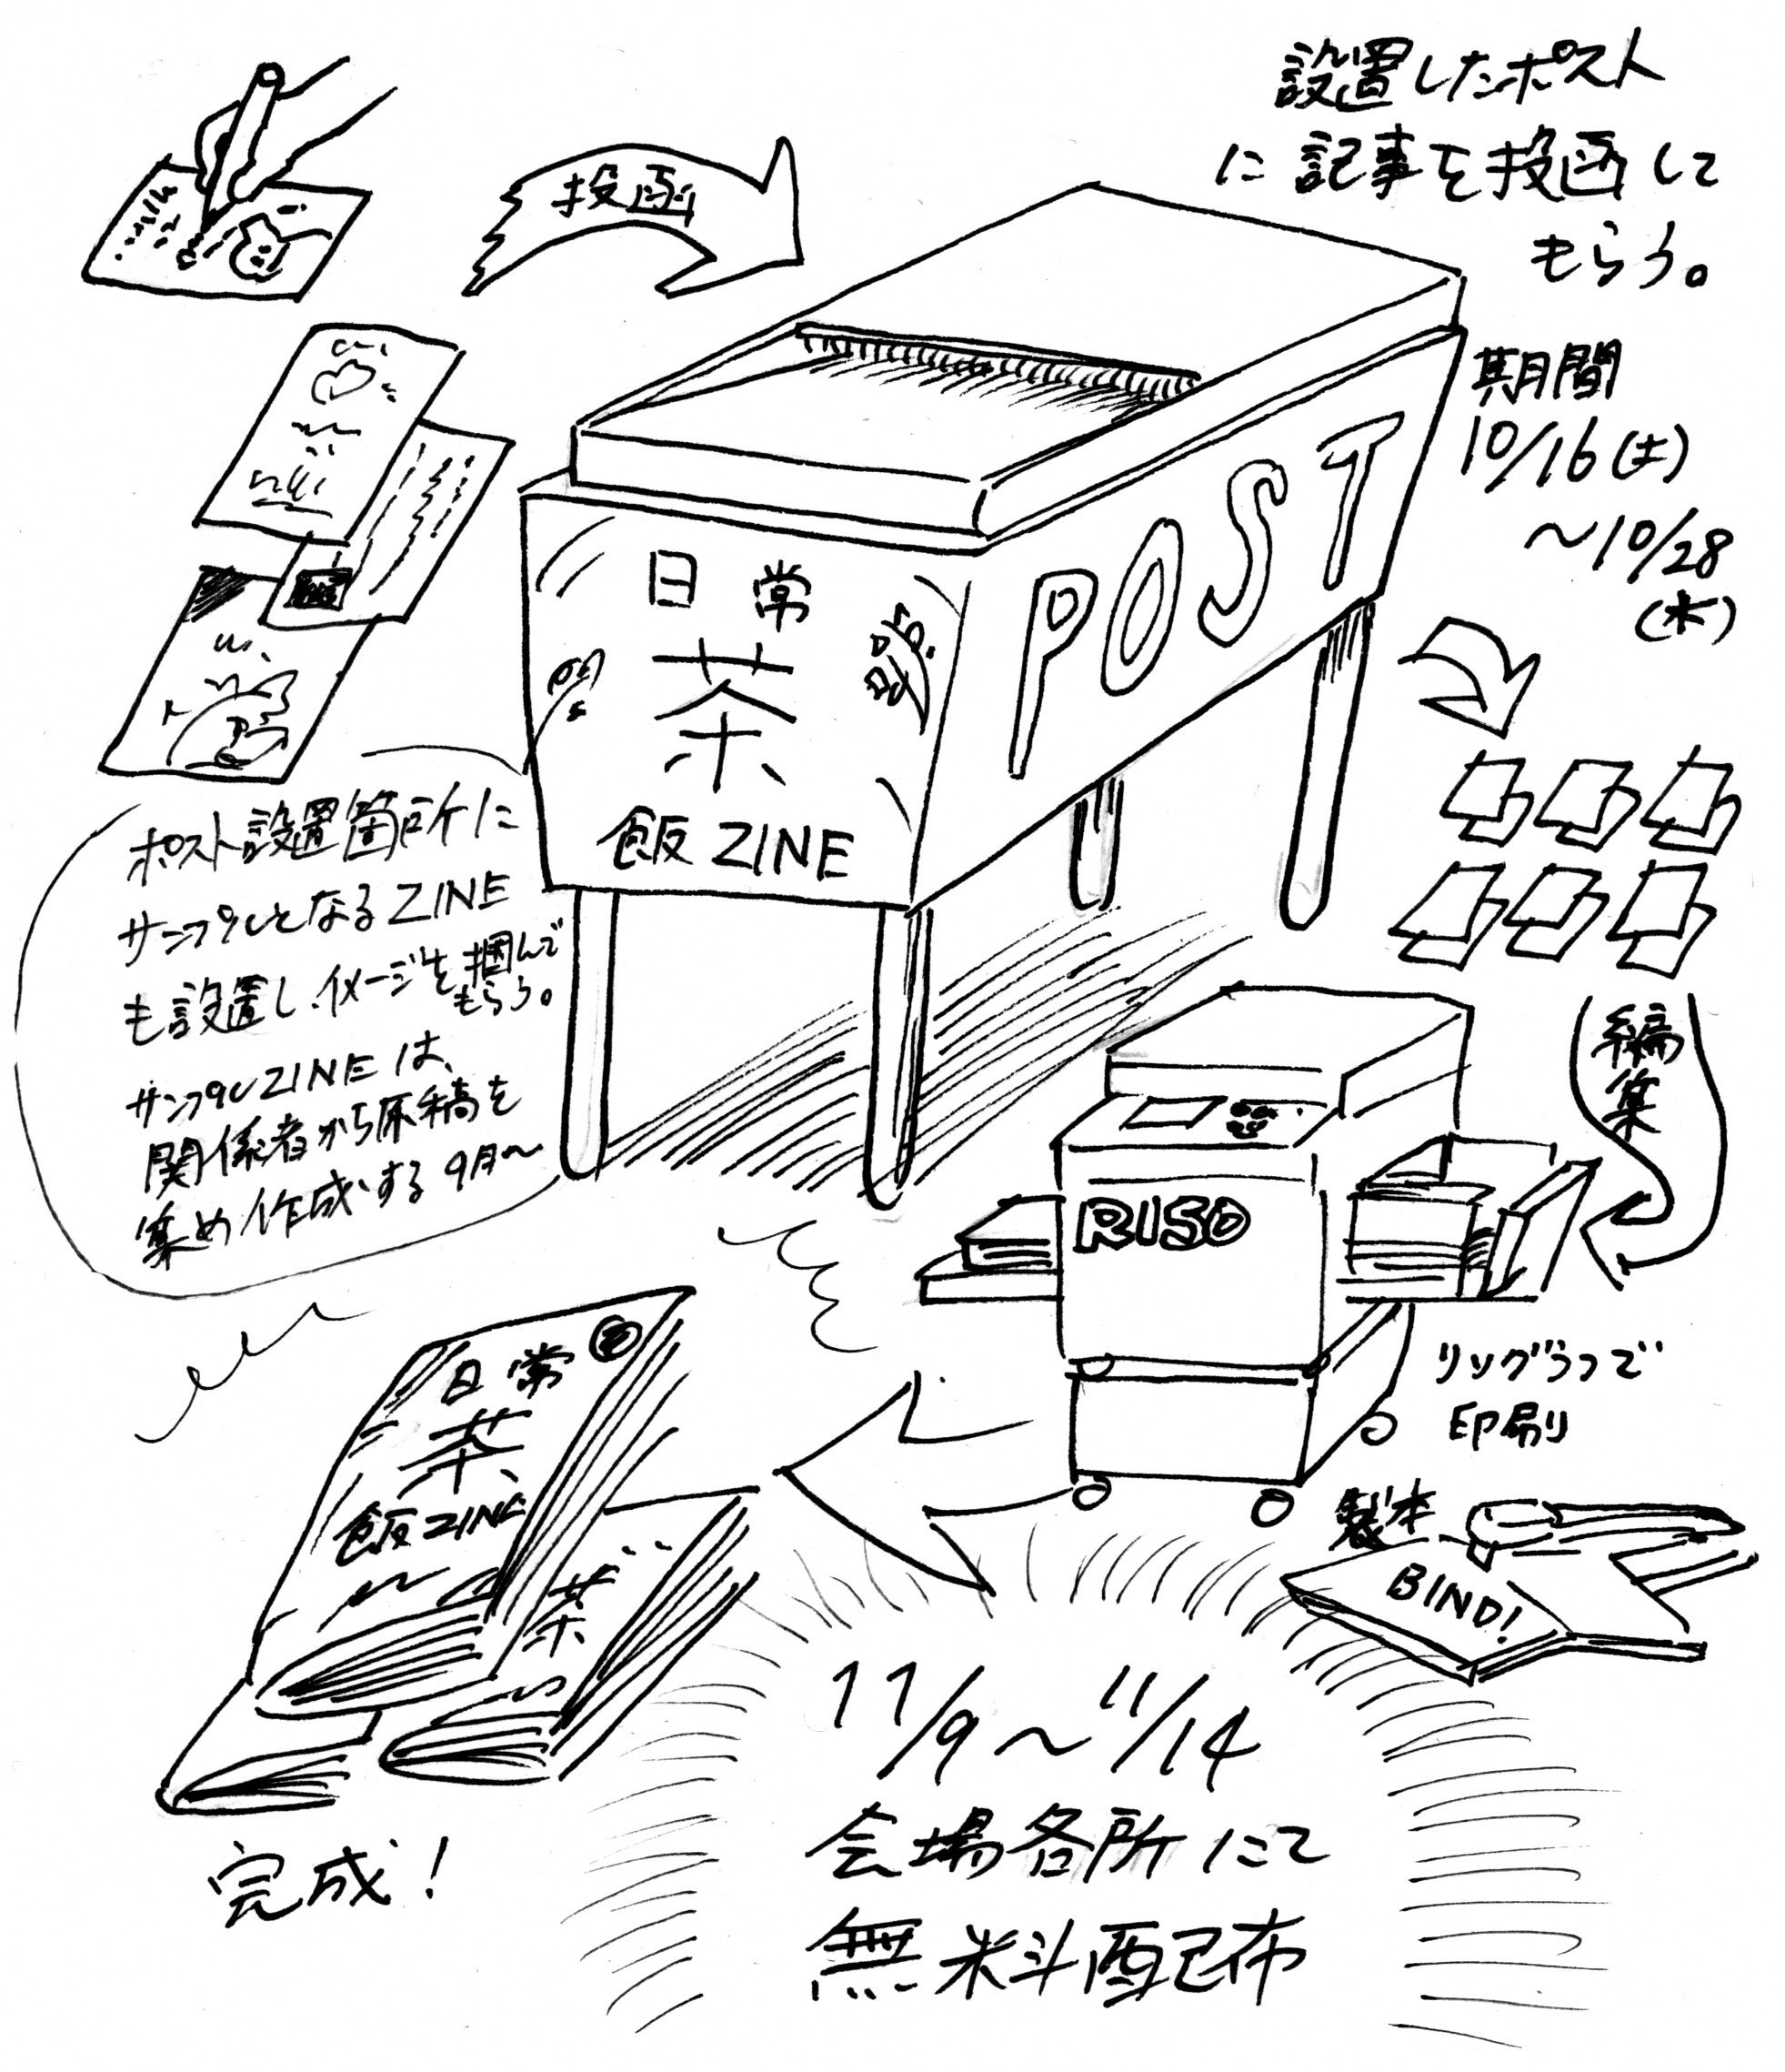 設置したポスト
に記事を投函して
もらう。
投函
期間
10/16(土)
〜10/28
(木)
POST
日常
茶
飯ZINE
ポスト設置箇所に
サンプルとなるZINE
も設置し、イメージを掴んで
もらう。
サンプルZINEは、
関係者から原稿を
集め作成する9月〜
編集
RISO
リソグラフで
印刷
製本
BIND!
日常
茶
飯ZINE
茶
完成!
11/9〜11/14
会場各所にて
無料配布